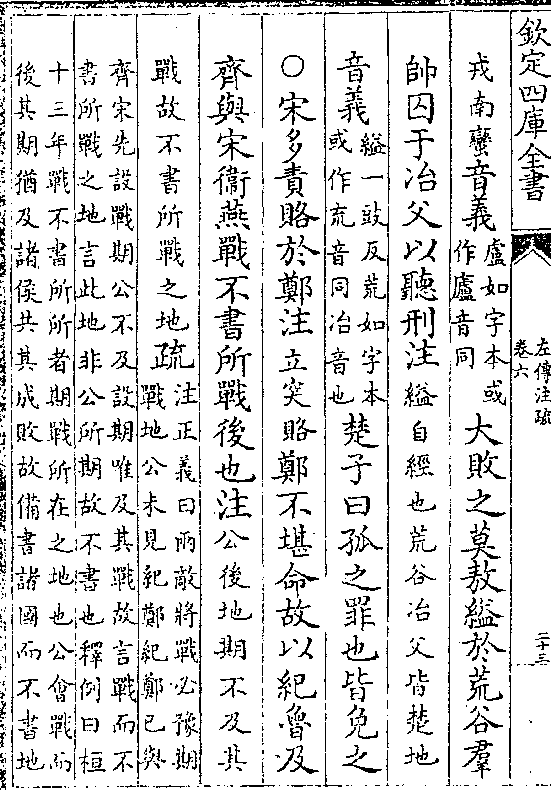 欽定四庫全書
左傳注疏
卷六
二十三
戎南蠻音義盧如字本或
作廬音同大敗之莫敖縊於荒谷羣
帥囚于冶父以聽刑注縊自經也荒谷冶父皆楚地
音義縊一豉反荒如字本
或作㠩音同冶音也楚子曰孤之罪也皆免之
○宋多責賂於鄭注立突賂鄭不堪命故以紀魯及
齊與宋衞燕戰不書所戰後也注公後地期不及其
戰故不書所戰之地疏注正義曰兩敵將戰必豫期
戰地公未見紀鄭紀鄭已與
齊宋先設戰期公不及設期唯及其戰故言戰而不
書所戰之地言此地非公所期故不書也釋例曰桓
十三年戰不書所所者期戰所在之地也公會戰而
後其期猶及諸侯共其成敗故備書諸國而不書地